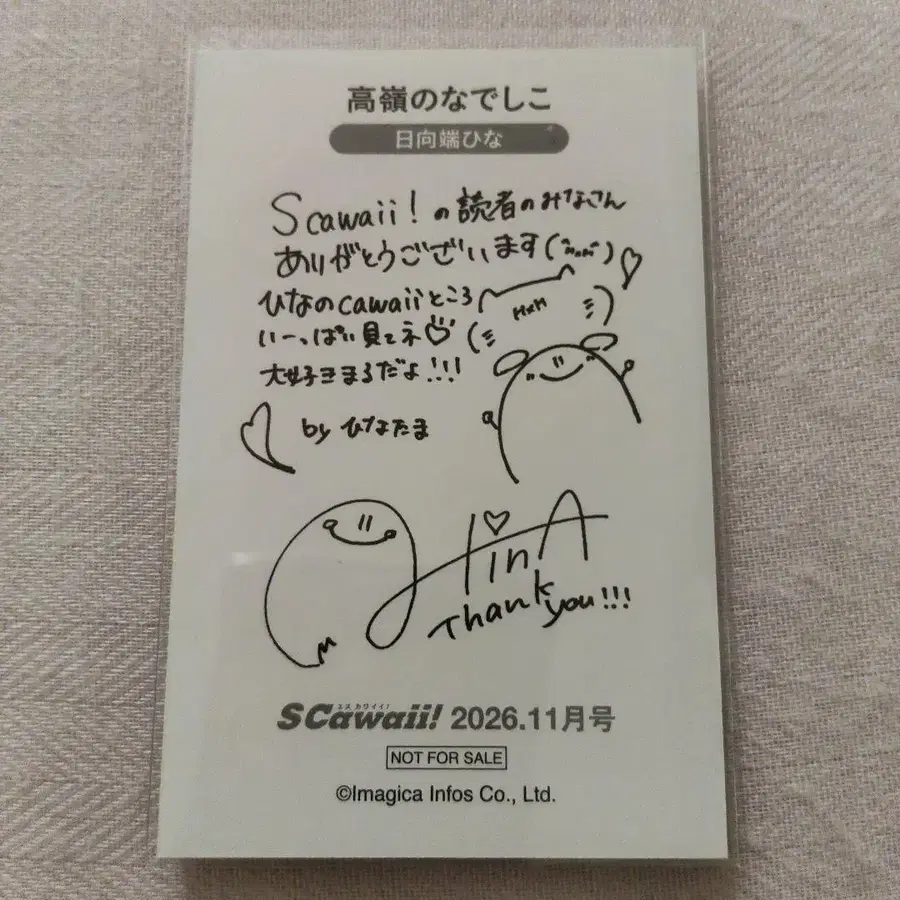 高嶺のなでしこ
日向端ひな
Scawaii!の読者のみなさん
ありがとうございます
ひなのcawaiiところ
いーっぱい見てネ
大好きまるだよ!!!
by ひなたま
HinA
Thank you!!!
エス カワイイ!
SCawaii! 2026.11月号
NOT FOR SALE
©Imagica Infos Co., Ltd.